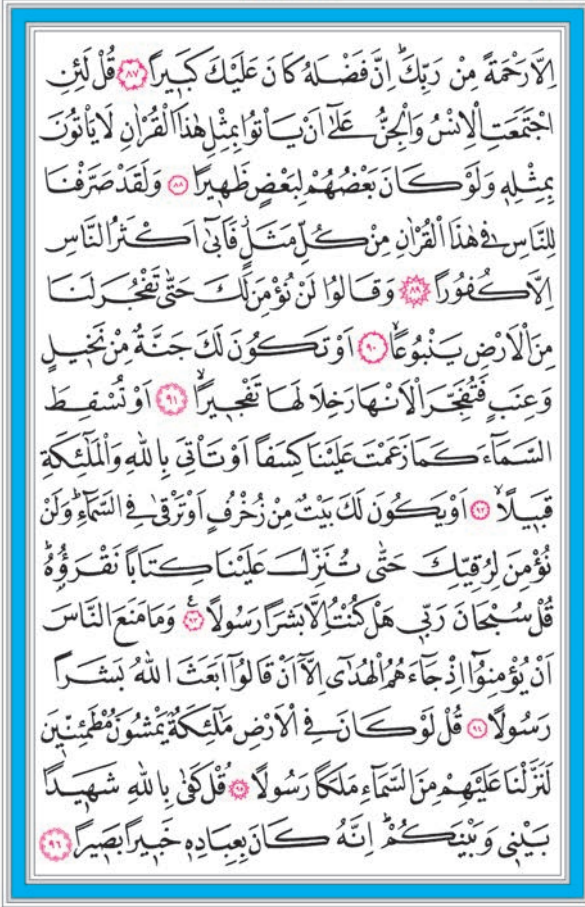 اِلَّا رَحْمَةً مِنْ رَبِّكَۜ اِنَّ فَضْلَهُ كَانَ عَلَيْكَ كَب۪يراً ﴿٨٧﴾ قُلْ لَئِنِ
اجْتَمَعَتِ الْاِنْسُ وَالْجِنُّ عَلٰٓى اَنْ يَأْتُوا بِمِثْلِ هٰذَا الْقُرْاٰنِ لَا يَأْتُونَ
بِمِثْلِه۪ وَلَوْ كَانَ بَعْضُهُمْ لِبَعْضٍ ظَه۪يراً ﴿٨٨﴾ وَلَقَدْ صَرَّفْنَا
لِلنَّاسِ ف۪ي هٰذَا الْقُرْاٰنِ مِنْ كُلِّ مَثَلٍۘ فَاَبٰٓى اَكْثَرُ النَّاسِ
اِلَّا كُفُوراً ﴿٨٩﴾ وَقَالُوا لَنْ نُؤْمِنَ لَكَ حَتّٰى تَفْجُرَ لَنَا
مِنَ الْاَرْضِ يَنْبُوعاًۙ ﴿٩٠﴾ اَوْ تَكُونَ لَكَ جَنَّةٌ مِنْ نَخ۪يلٍ
وَعِنَبٍ فَتُفَجِّرَ الْاَنْهَارَ خِلَالَهَا تَفْج۪يراًۙ ﴿٩١﴾ اَوْ تُسْقِطَ
السَّمَٓاءَ كَمَا زَعَمْتَ عَلَيْنَا كِسَفاً اَوْ تَأْتِيَ بِاللّٰهِ وَالْمَلٰٓئِكَةِ
قَب۪يلاًۙ ﴿٩٢﴾ اَوْ يَكُونَ لَكَ بَيْتٌ مِنْ زُخْرُفٍ اَوْ تَرْقٰى فِي السَّمَٓاءِۜ وَلَنْ
نُؤْمِنَ لِرُقِيِّكَ حَتّٰى تُنَزِّلَ عَلَيْنَا كِتَاباً نَقْرَؤُ۬هُۜ
قُلْ سُبْحَانَ رَبّ۪ي هَلْ كُنْتُ اِلَّا بَشَراً رَسُولاً۟ ﴿٩٣﴾ وَمَا مَنَعَ النَّاسَ
اَنْ يُؤْمِنُٓوا اِذْ جَٓاءَهُمُ الْهُدٰٓى اِلَّٓا اَنْ قَالُٓوا اَبَعَثَ اللّٰهُ بَشَراً
رَسُولاً ﴿٩٤﴾ قُلْ لَوْ كَانَ فِي الْاَرْضِ مَلٰٓئِكَةٌ يَمْشُونَ مُطْمَئِنّ۪ينَ
لَنَزَّلْنَا عَلَيْهِمْ مِنَ السَّمَٓاءِ مَلَكاً رَسُولاً ﴿٩٥﴾ قُلْ كَفٰى بِاللّٰهِ شَه۪يداً
بَيْن۪ي وَبَيْنَكُمْۜ اِنَّهُ كَانَ بِعِبَادِه۪ خَب۪يراً بَص۪يراً ﴿٩٦﴾